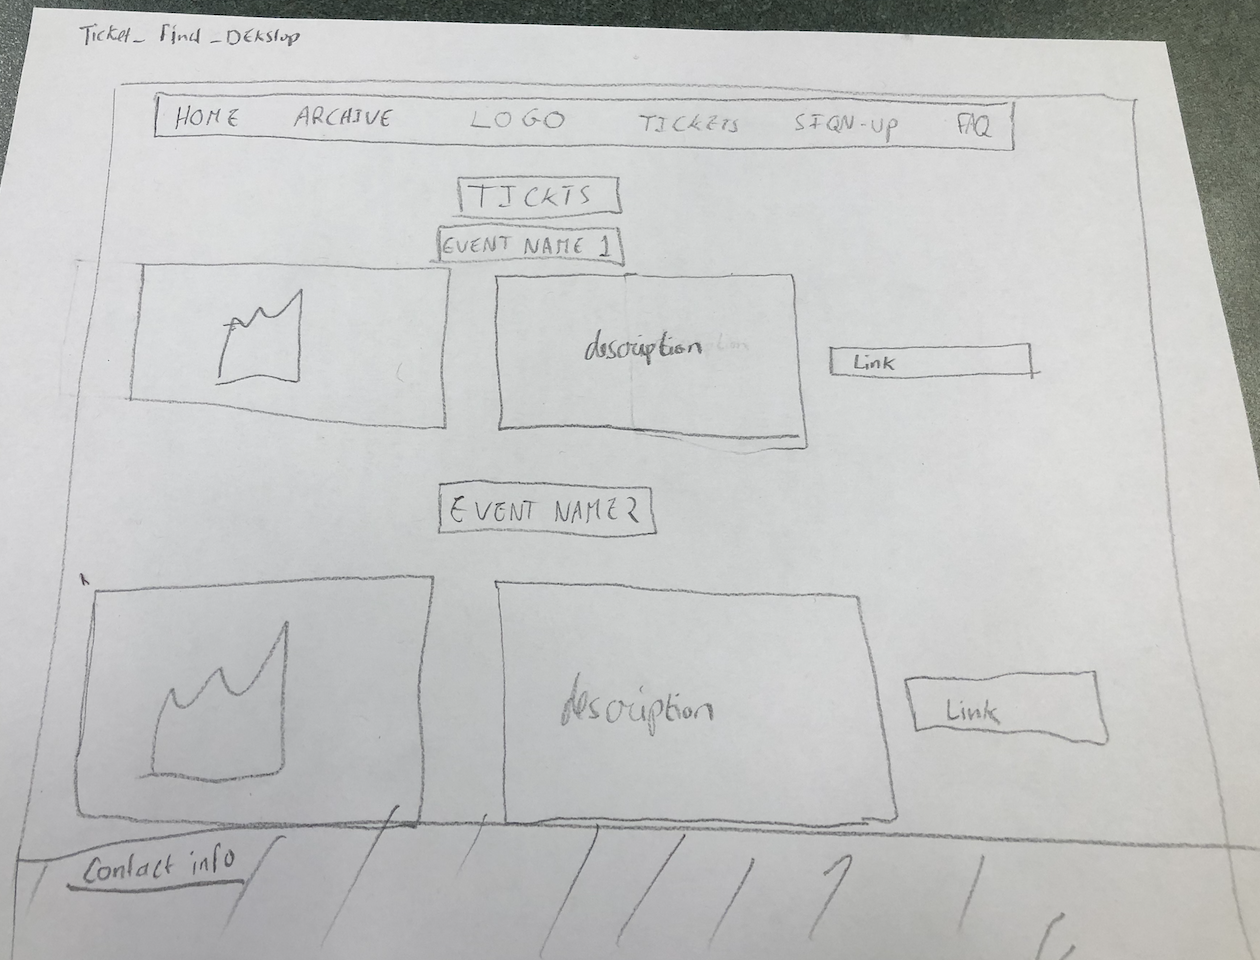 Ticket_ Find _DEKstop
HOME ARCHIVE LOGO TICKETS SIGN-UP FAQ
TICKTS
EVENT NAME 1
description
Link
EVENT NAME 2
description
Link
Contact info